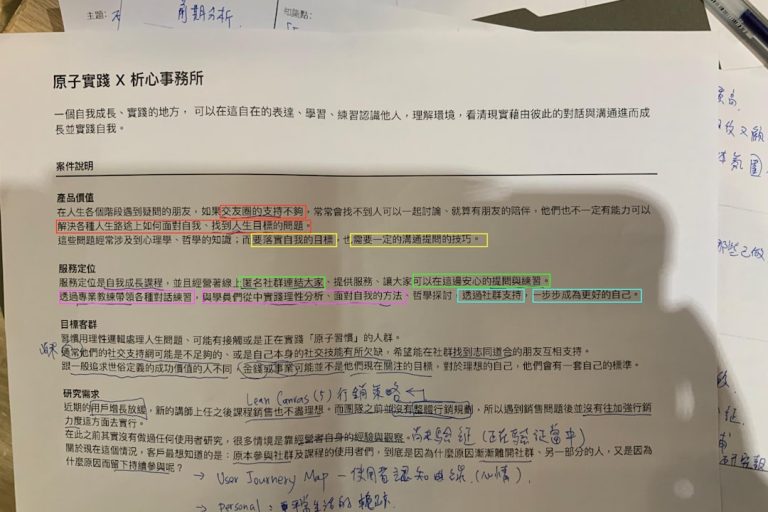 主題：
角期分析
知識點：
原子實踐 X 析心事務所
一個自我成長、實踐的地方， 可以在這自在的表達、學習、練習認識他人，理解環境，看清現實藉由彼此的對話與溝通進而成
長並實踐自我。
案件說明
產品價值
在人生各個階段遇到疑問的朋友，如果交友圈的支持不夠，常常會找不到人可以一起討論、就算有朋友的陪伴，他們也不一定有能力可以
解決各種人生路途上如何面對自我、找到人生目標的問題。
這些問題經常涉及到心理學、哲學的知識；而要落實自我的目標，也需要一定的溝通提問的技巧。
服務定位
服務定位是自我成長課程，並且經營著線上匿名社群連結大家、提供服務、讓大家可以在這邊安心的提問與練習。
透過專業教練帶領各種對話練習，與學員們從中實踐理性分析、面對自我的方法、哲學探討，透過社群支持，一步步成為更好的自己。
目標客群
習慣用理性邏輯處理人生問題、可能有接觸或是正在實踐「原子習慣」的人群。
通常他們的社交支持網可能是不足夠的、或是自己本身的社交技能有所欠缺，希望能在社群找到志同道合的朋友互相支持。
跟一般追求世俗定義的成功價值的人不同，金錢或事業可能並不是他們現在關注的目標，對於理想的自己，他們會有一套自己的標準。
研究需求
Lean Canvas (5) 行銷策略
近期的用戶增長放緩，新的講師上任之後課程銷售也不盡理想。而團隊之前並沒有整體行銷規劃，所以遇到銷售問題後並沒有往加強行銷
力度這方面去實行。
在此之前其實沒有做過任何使用者研究，很多情境是靠經營者自身的經驗與觀察。尚未驗証 (正在驗証當中)
關於現在這個情況，客戶最想知道的是：原本參與社群及課程的使用者們，到底是因為什麼原因漸漸離開社群、另一部分的人，又是因為
什麼原因而留下持續參與呢？
→ User Journery Map — 使用者認知曲線 (心情)
→ personal：更平常生活的軌跡